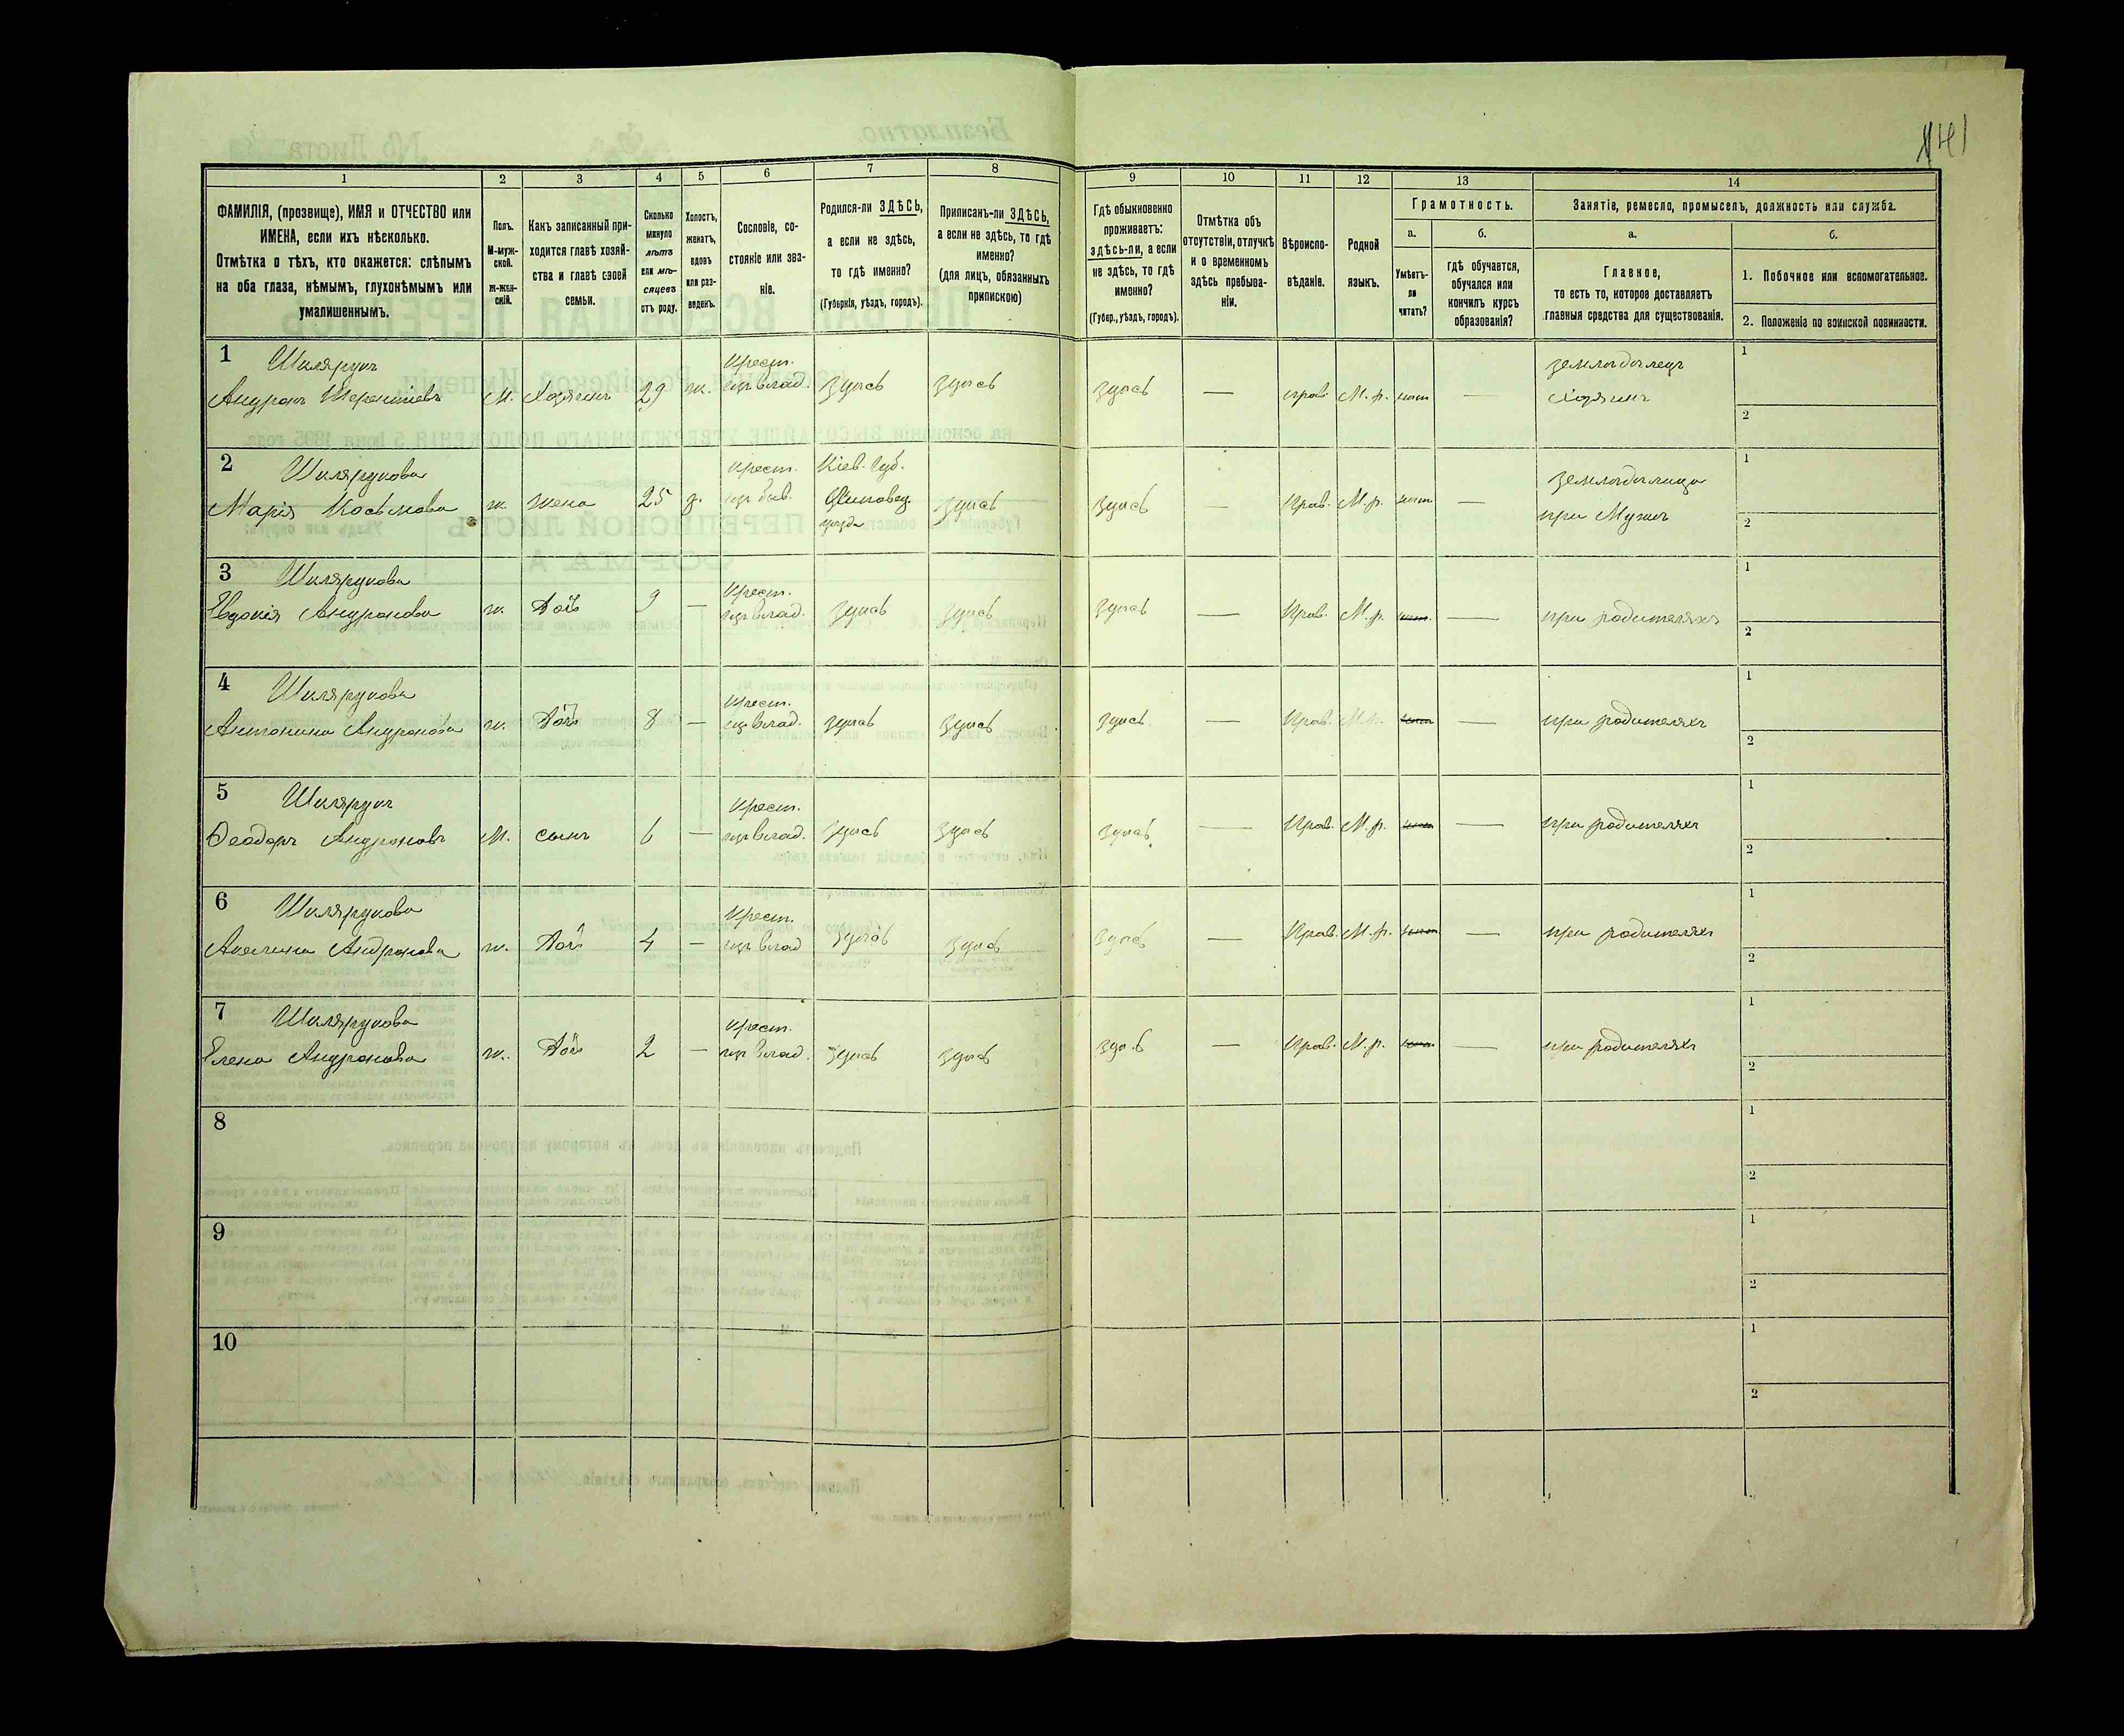 141
1 2 3 4 5 6 7 8 9 10 11 12 13 14
ФАМИЛІЯ, (прозвище), ИМЯ и ОТЧЕСТВО или
ИМЕНА, если ихъ нѣсколько.
Отмѣтка о тѣхъ, кто окажется: слѣпымъ
на оба глаза, нѣмымъ, глухонѣмымъ или
умалишеннымъ.
Полъ.
М-муж-
ской.
Ж-жен-
скій.
Какъ записанный при-
ходится главѣ хозяй-
ства и главѣ своей
семьи.
Сколько
минуло
лѣтъ
или мѣ-
сяцевъ
отъ роду.
Холостъ,
женатъ,
вдовъ
или раз-
веденъ.
Сословіе, со-
стояніе или зва-
ніе.
Родился-ли ЗДѢСЬ,
а если не здѣсь,
то гдѣ именно?
(Губернія, уѣздъ, городъ).
Приписанъ-ли ЗДѢСЬ,
а если не здѣсь, то гдѣ
именно?
(для лицъ, обязанныхъ
припискою)
Гдѣ обыкновенно
проживаетъ:
здѣсь-ли, а если
не здѣсь, то гдѣ
именно?
(Губер., уѣздъ, городъ).
Отмѣтка объ
отсутствіи, отлучкѣ
и о временномъ
здѣсь пребыва-
ніи.
Вѣроиспо-
вѣданіе.
Родной
языкъ.
Грамотность.
а.
Умѣетъ-
ли
читать?
б.
гдѣ обучается,
обучался или
кончилъ курсъ
образованія?
Занятіе, ремесло, промыселъ, должность или служба.
а.
Главное,
то есть то, которое доставляетъ
главныя средства для существованія.
б.
1. Побочное или вспомогательное.
2. Положеніе по воинской повинности.
1 Шклярукъ Крест. земледѣлецъ 1
Андронъ Терентіевъ М. Хозяинъ 29 ж. изъ влад. здѣсь здѣсь здѣсь — прав. М. р. нѣтъ — Хозяинъ
2
2 Шклярукова Крест. Кіев. Губ. земледѣлица 1
Марія Косьмова ж. жена 25 з. здѣсь здѣсь — Прав. М. р. нѣтъ — при Мужѣ
уѣзда
2
3 Шклярукова Крест. 1
Евдокія Андронова ж. Дочь 9 — изъ влад. здѣсь здѣсь здѣсь — Прав. М. р. нѣтъ — при родителяхъ
2
4 Шклярукова Крест. 1
Антонина Андронова ж. Дочь 8 — изъ влад. здѣсь здѣсь здѣсь — Прав. М. р. нѣтъ — при родителяхъ
2
5 Шклярукъ Крест. 1
Ѳеодоръ Андроновъ М. сынъ 6 — изъ влад. здѣсь здѣсь здѣсь — Прав. М. р. нѣтъ — при родителяхъ
2
6 Шклярукова Крест. 1
Акилина Андронова ж. Дочь 4 — изъ влад здѣсь здѣсь здѣсь — Прав. М. р. нѣтъ — при родителяхъ
2
7 Шклярукова Крест. 1
Елена Андронова ж. Дочь 2 — изъ влад. здѣсь здѣсь здѣсь — Прав. М. р. нѣтъ — при родителяхъ
2
8 1
2
9 1
2
10 1
2